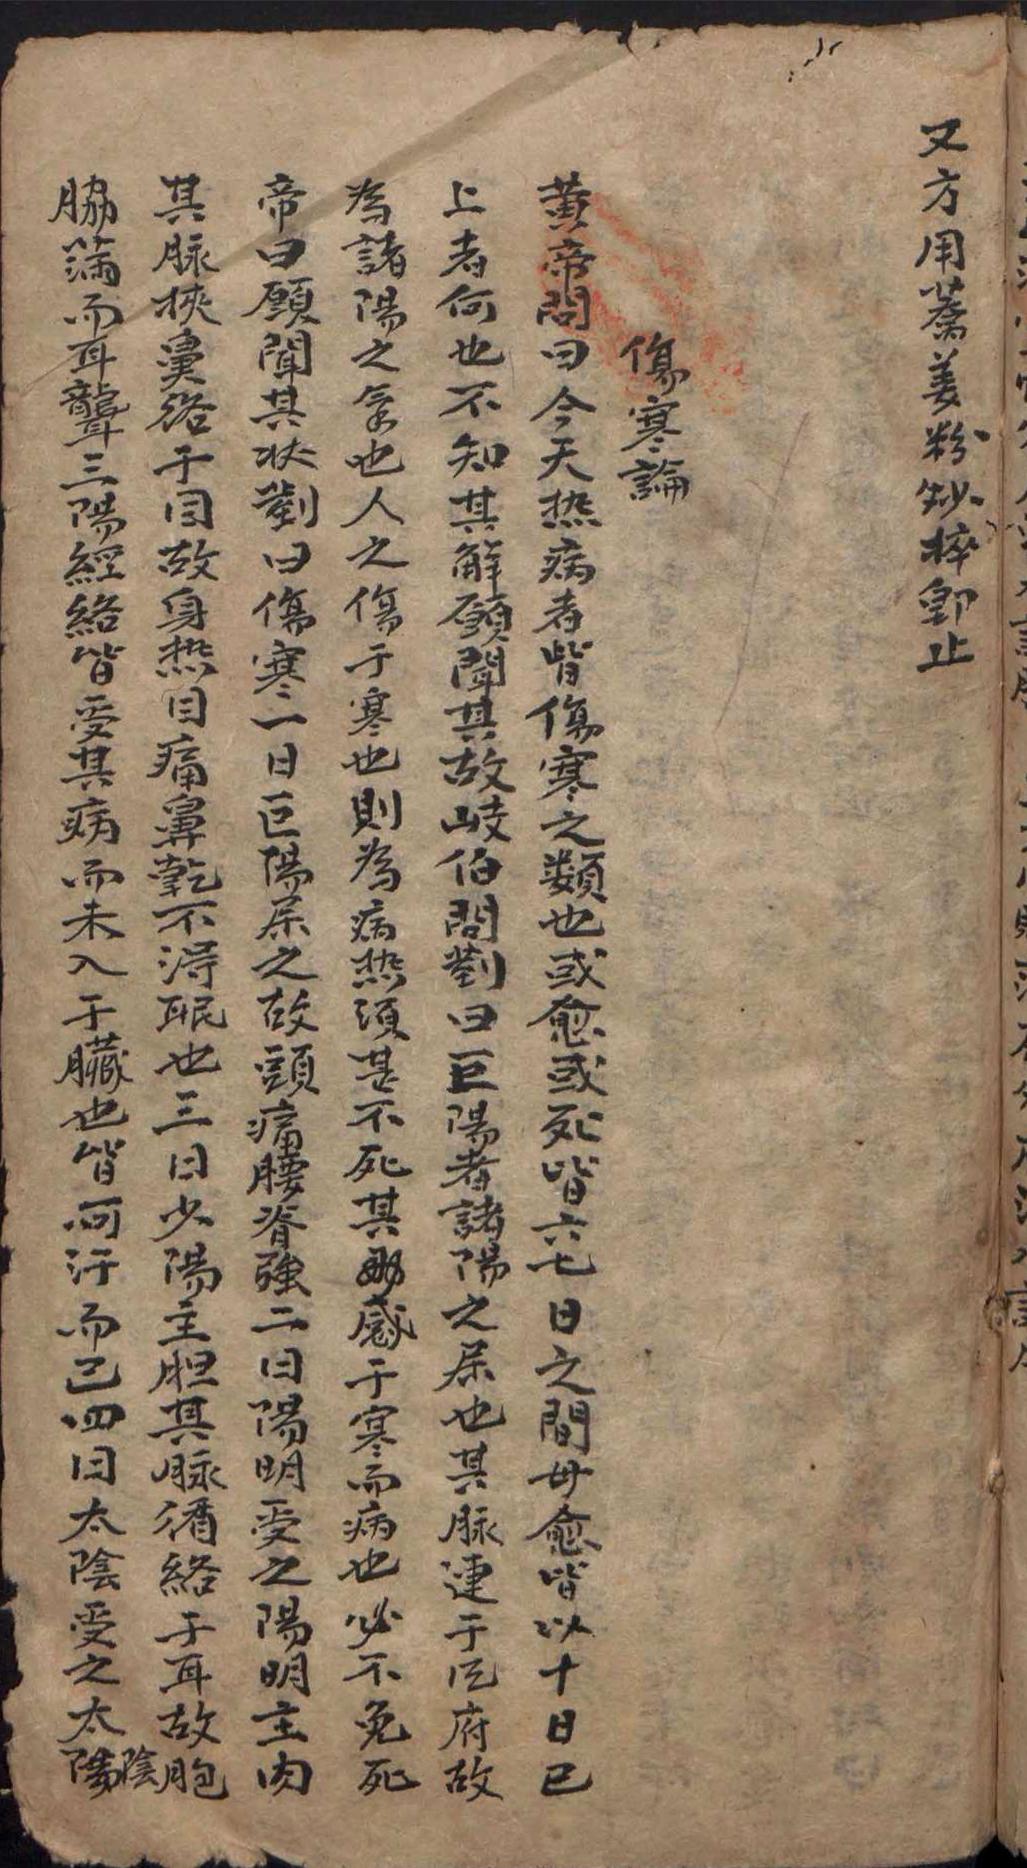 又方用薷姜粉炒搾即止
傷寒論
黃帝問曰今天热病者皆傷寒之類也或愈或死皆六七日之間毋愈皆以十日已
上者何也不知其解願聞其故岐伯問對曰巨陽者諸陽之屎也其脉連于氏府故
為諸陽之氣也人之傷于寒也則為病热須甚不死其感于寒而病也必不免死
帝曰願聞其状對曰傷寒一日巨陽屎之故頭痛腰脊強二曰陽明受之陽明主肉
其脉挾鼻洛于目故身热目痛鼻乾不淂眠也三日少陽主胆其脉循絡于耳故胞
脇滿而耳聾三陽經絡皆受其病而未入于臟也皆可汗而已四日太陰受之太陽陰